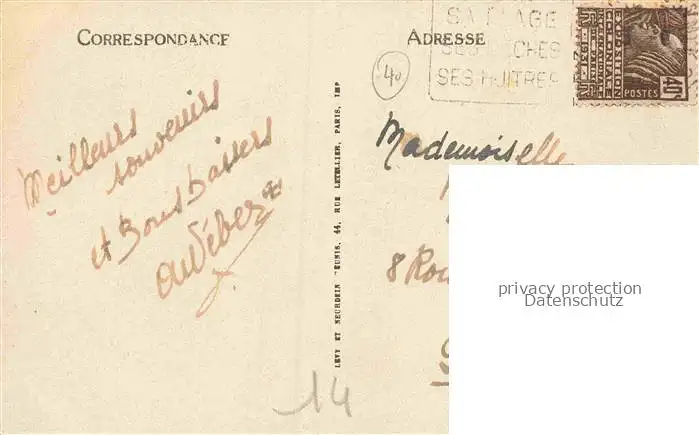 CORRESPONDANCE
ADRESSE
SA PLAGE
SES HUITRES
EXPOSITION
COLONIALE
INTERNATIONALE
1931
POSTES
40c
40
Meilleurs
souvenirs
et Bons baisers
Mademoiselle
8 Rou
LEVY ET NEURDEIN RÉUNIS, 44, RUE LETELLIER, PARIS, IMP
privacy protection
Datenschutz
14